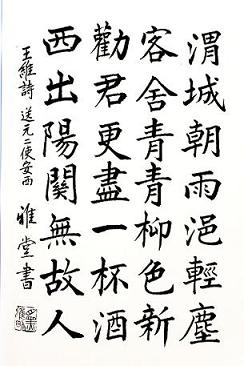 渭城朝雨浥輕塵
客舍青青柳色新
勸君更盡一杯酒
西出陽關無故人
王維詩 送元二使安西 雅堂書